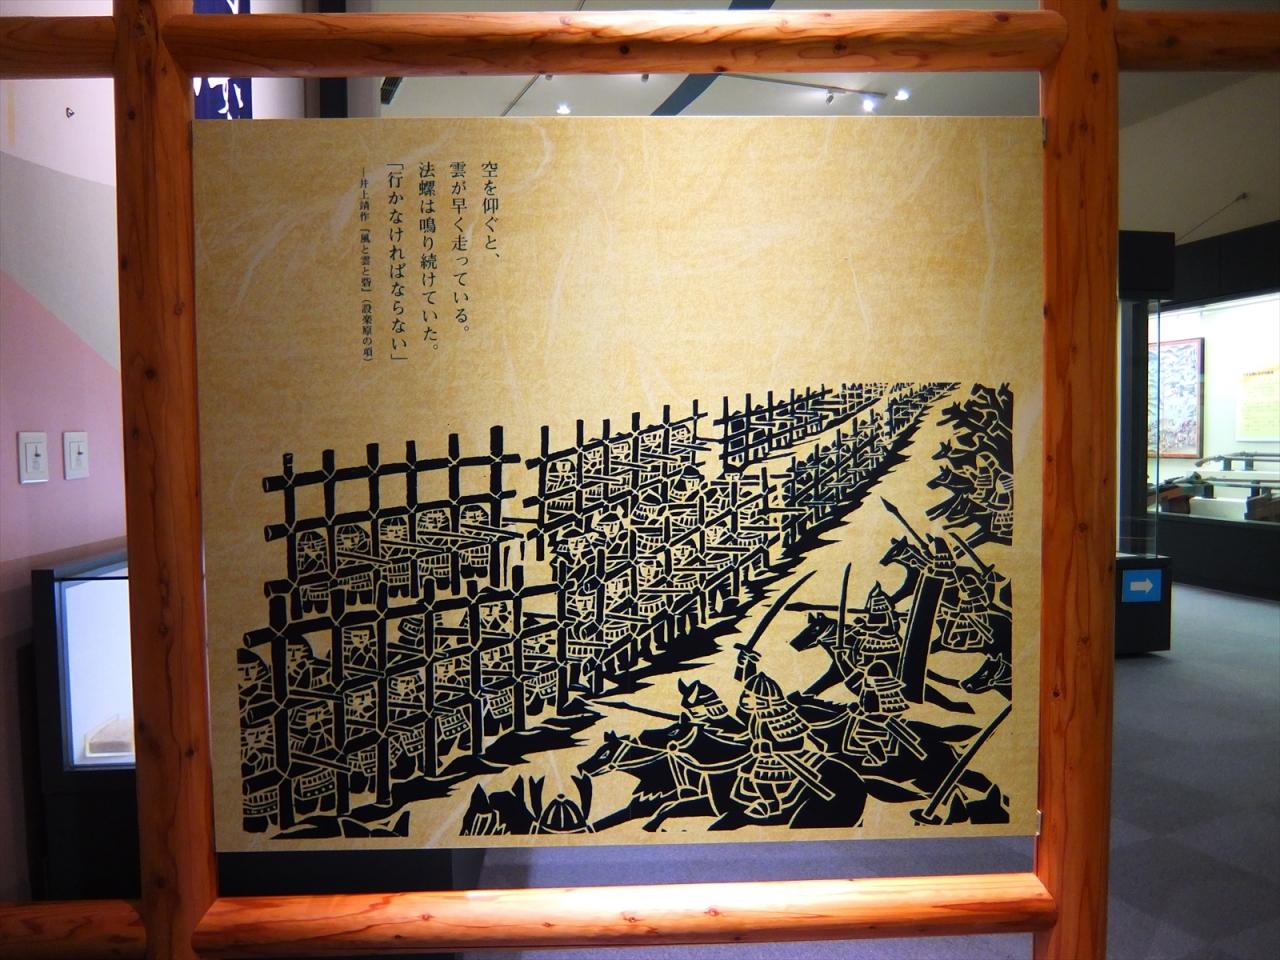 空を仰ぐと、
雲が早く走っている。
法螺は鳴り続けていた。
「行かなければならない」
―井上靖作『風と雲と砦』(設楽原の項)